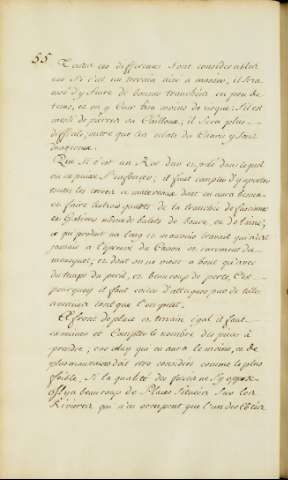 55
Toutes ces differences sont considerables
car si c'est un terrain aisé a manier, il sera
aisé d'y faire de bonnes tranchées en peu de
tems, et on y court bien moins de risque; s'il est
mesle de pierres ou Cailloux, il sera plus
difficile, outre que les eclats du Canon y sont
dangereux.
Que si c'est un Roc dur et pelé dans lequel
on ne puisse s'enfoncer, il faut compter d'y aporter
toutes les terres et materiaux dont on aura besoin
en faire les trois quarts de la tranchée de fascines
et Gabions de balots de bourre, et de laine,
ce qui produit un long et mauvais travail qui n'est
jamais a l'épreuve du Canon et rarement du
mousquet, et dont on ne vient a bout qu'avec
du temps du peril, et beaucoup de perte, C'est
pourquoy il faut eviter d'attaquer par de telles
avenues tant que l'on peut.
A front de place et terrain egal il faut
examiner et Compter le nombre des pieces a
prendre, car celuy qui en aura le moins, ou de
plus mauvaises doit etre considéré comme le plus
foible, si la qualité des fossés ne s'y oppose
Il y a beaucoup de Places situées sur les
Rivieres qui n'en occupent que l'un des Côtés